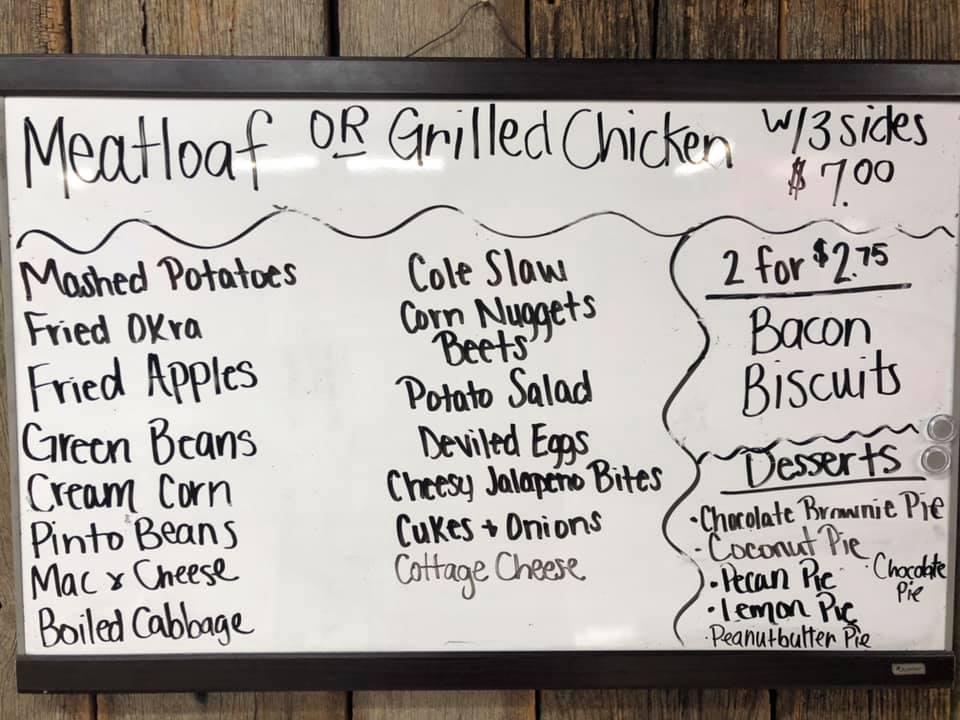 Meatloaf OR Grilled Chicken w/3 sides
$7.00
Mashed Potatoes
Fried Okra
Fried Apples
Green Beans
Cream Corn
Pinto Beans
Mac & Cheese
Boiled Cabbage
Cole Slaw
Corn Nuggets
Beets
Potato Salad
Deviled Eggs
Cheesy Jalapeno Bites
Cukes + Onions
Cottage Cheese
2 for $2.75
Bacon
Biscuits
Desserts
•Chocolate Brownie Pie
•Coconut Pie
•Pecan Pie
•Lemon Pie
•Peanutbutter Pie
•Chocolate
Pie